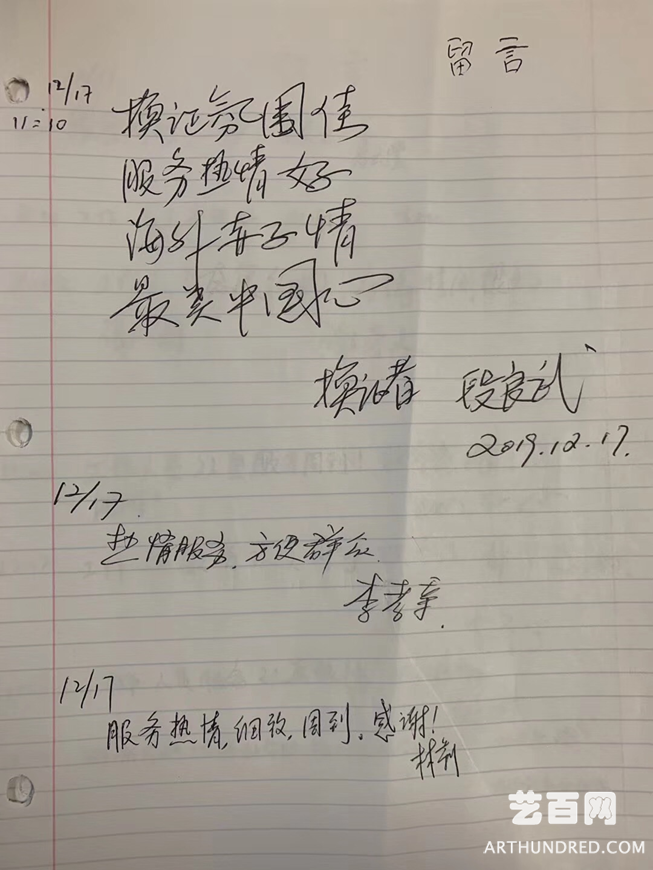 留言
12/17
11:10
换证氛围佳
服务热情好
海外赤子情
最美中国心
换证者 段良武
2019.12.17.
12/17.
热情服务,方便群众
李孝
12/17
服务热情,细致,周到。感谢!
艺百网
ARTHUNDRED.COM